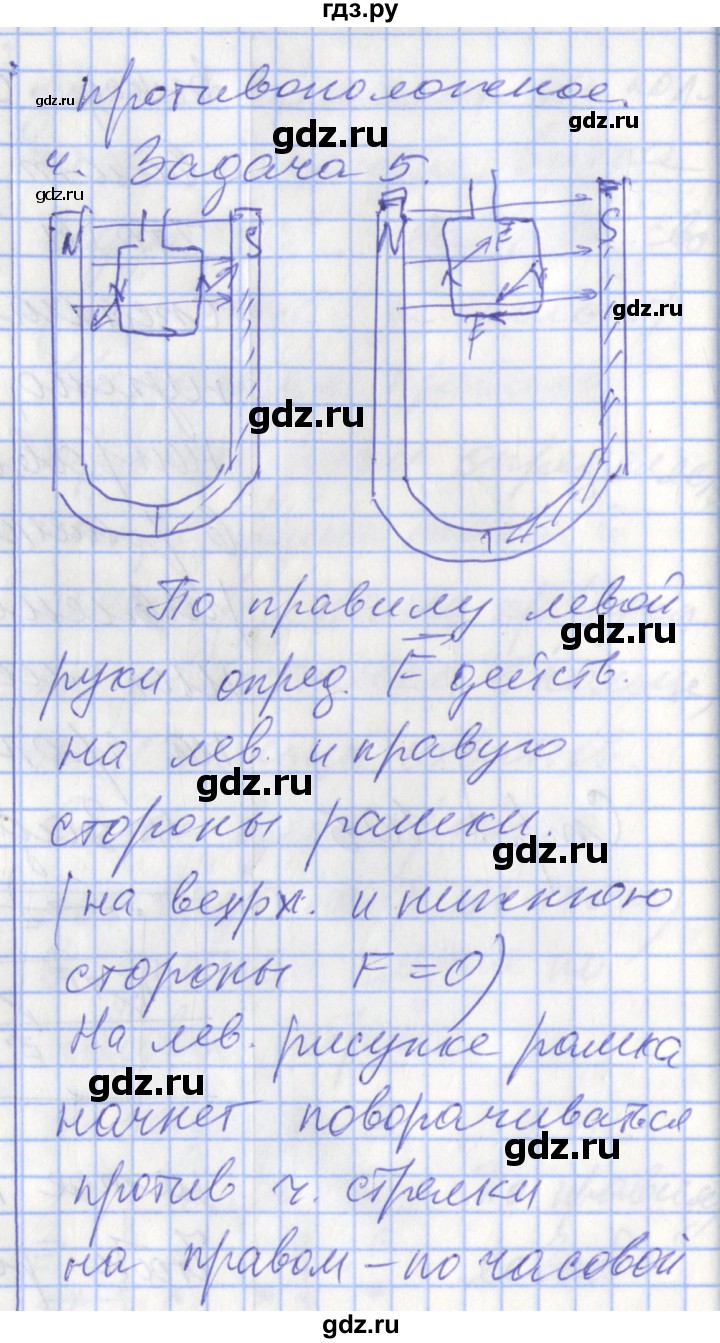 гдз.ру
противоположное.
4. Задача 5.
N S N F S
F
По правилу левой
руки опред. F действ.
на лев. и правую
стороны рамки.
(на верхн. и нижнюю
стороны F = 0)
На лев. рисунке рамка
начнет поворачиваться
против ч. стрелки
на правом – по часовой
gdz.ru
gdz.ru
gdz.ru
gdz.ru
gdz.ru
gdz.ru
gdz.ru
gdz.ru
gdz.ru
gdz.ru
gdz.ru
gdz.ru
gdz.ru